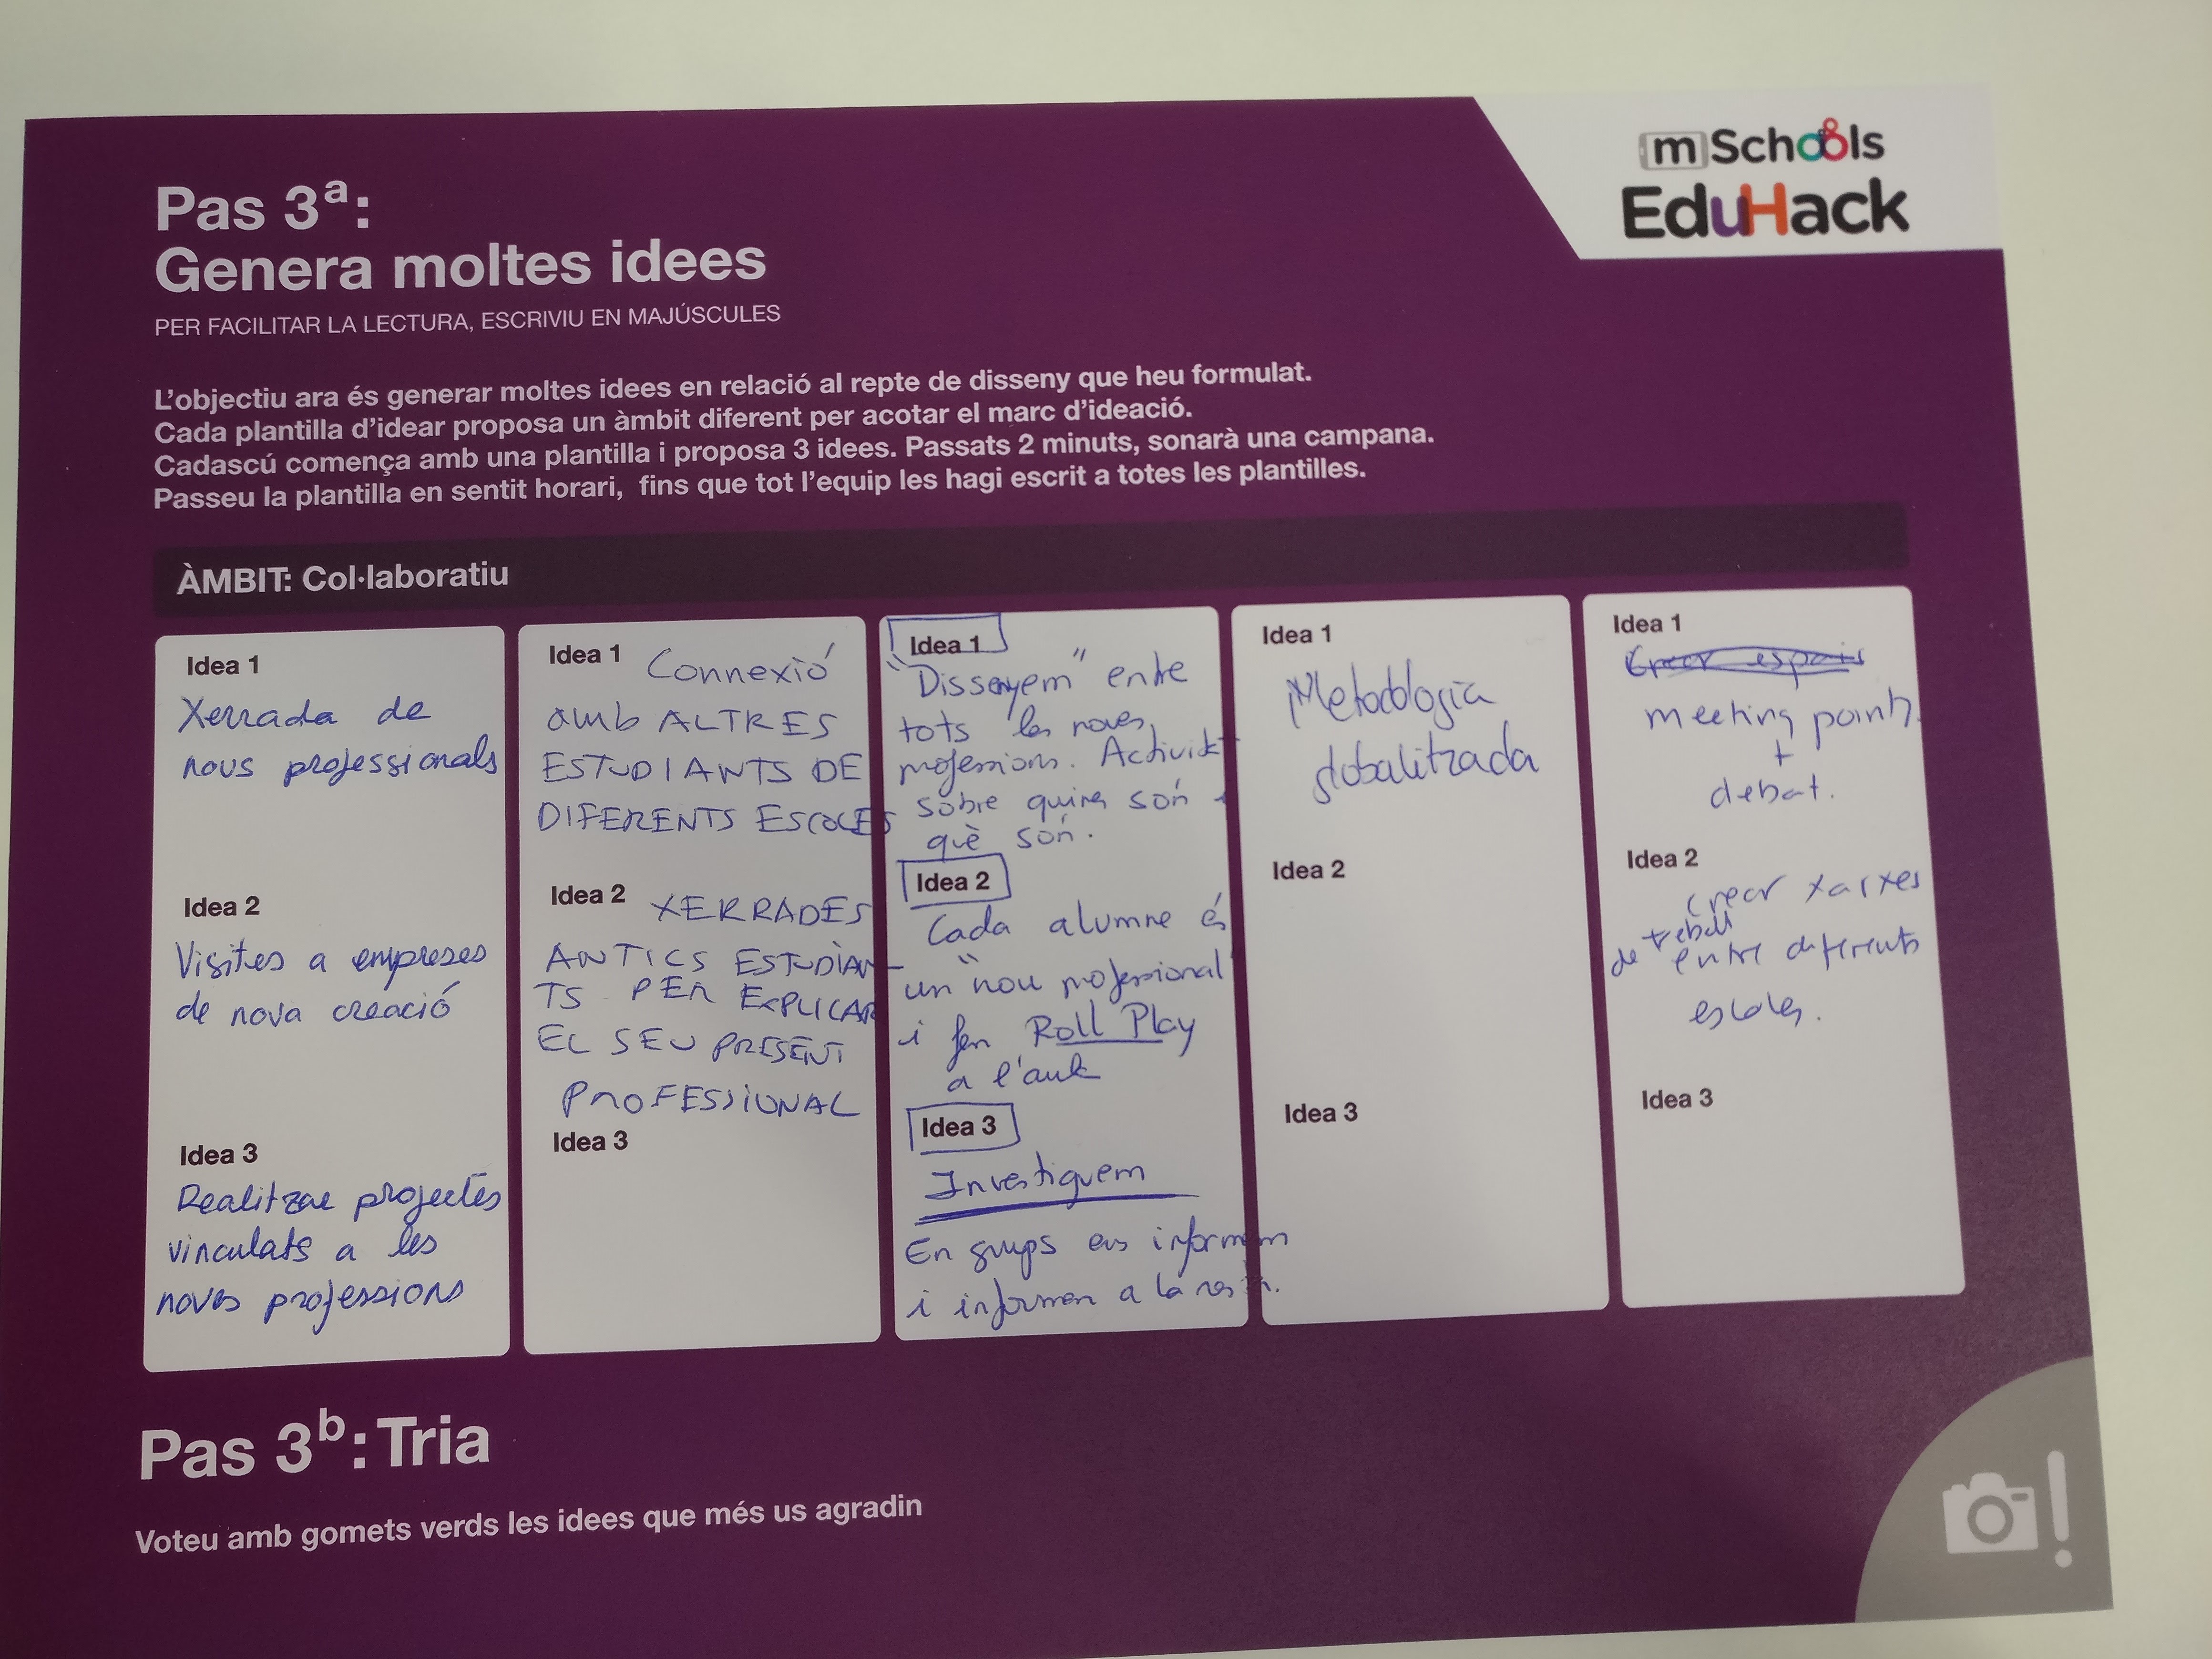 mSchools
EduHack
Pas 3ª:
Genera moltes idees
PER FACILITAR LA LECTURA, ESCRIVIU EN MAJÚSCULES
L'objectiu ara és generar moltes idees en relació al repte de disseny que heu formulat.
Cada plantilla d'idear proposa un àmbit diferent per acotar el marc d'ideació.
Cadascú comença amb una plantilla i proposa 3 idees. Passats 2 minuts, sonarà una campana.
Passeu la plantilla en sentit horari, fins que tot l'equip les hagi escrit a totes les plantilles.
ÀMBIT: Col·laboratiu
Idea 1
Xerrada de
nous professionals
Idea 2
Visites a empreses
de nova creació
Idea 3
Realitzar projectes
vinculats a les
noves professions
Idea 1 Connexió
amb ALTRES
ESTUDIANTS DE
DIFERENTS ESCOLES
Idea 2 XERRADES
ANTICS ESTUDIAN-
TS PER EXPLICAR
EL SEU PRESENT
PROFESSIONAL
Idea 3
Idea 1
"Dissenyem" entre
tots les noves
professions. Activitat
sobre quines són i
què són.
Idea 2
Cada alumne és
un "nou professional"
i fem Roll Play
a l'aula
Idea 3
Investiguem
En grups ens informem
i informem a la resta.
Idea 1
Metodologia
globalitzada
Idea 2
Idea 3
Idea 1
Crear espais
meeting points
+
debat.
Idea 2
crear xarxes
de treball
entre diferents
escoles.
Idea 3
Pas 3b: Tria
Voteu amb gomets verds les idees que més us agradin